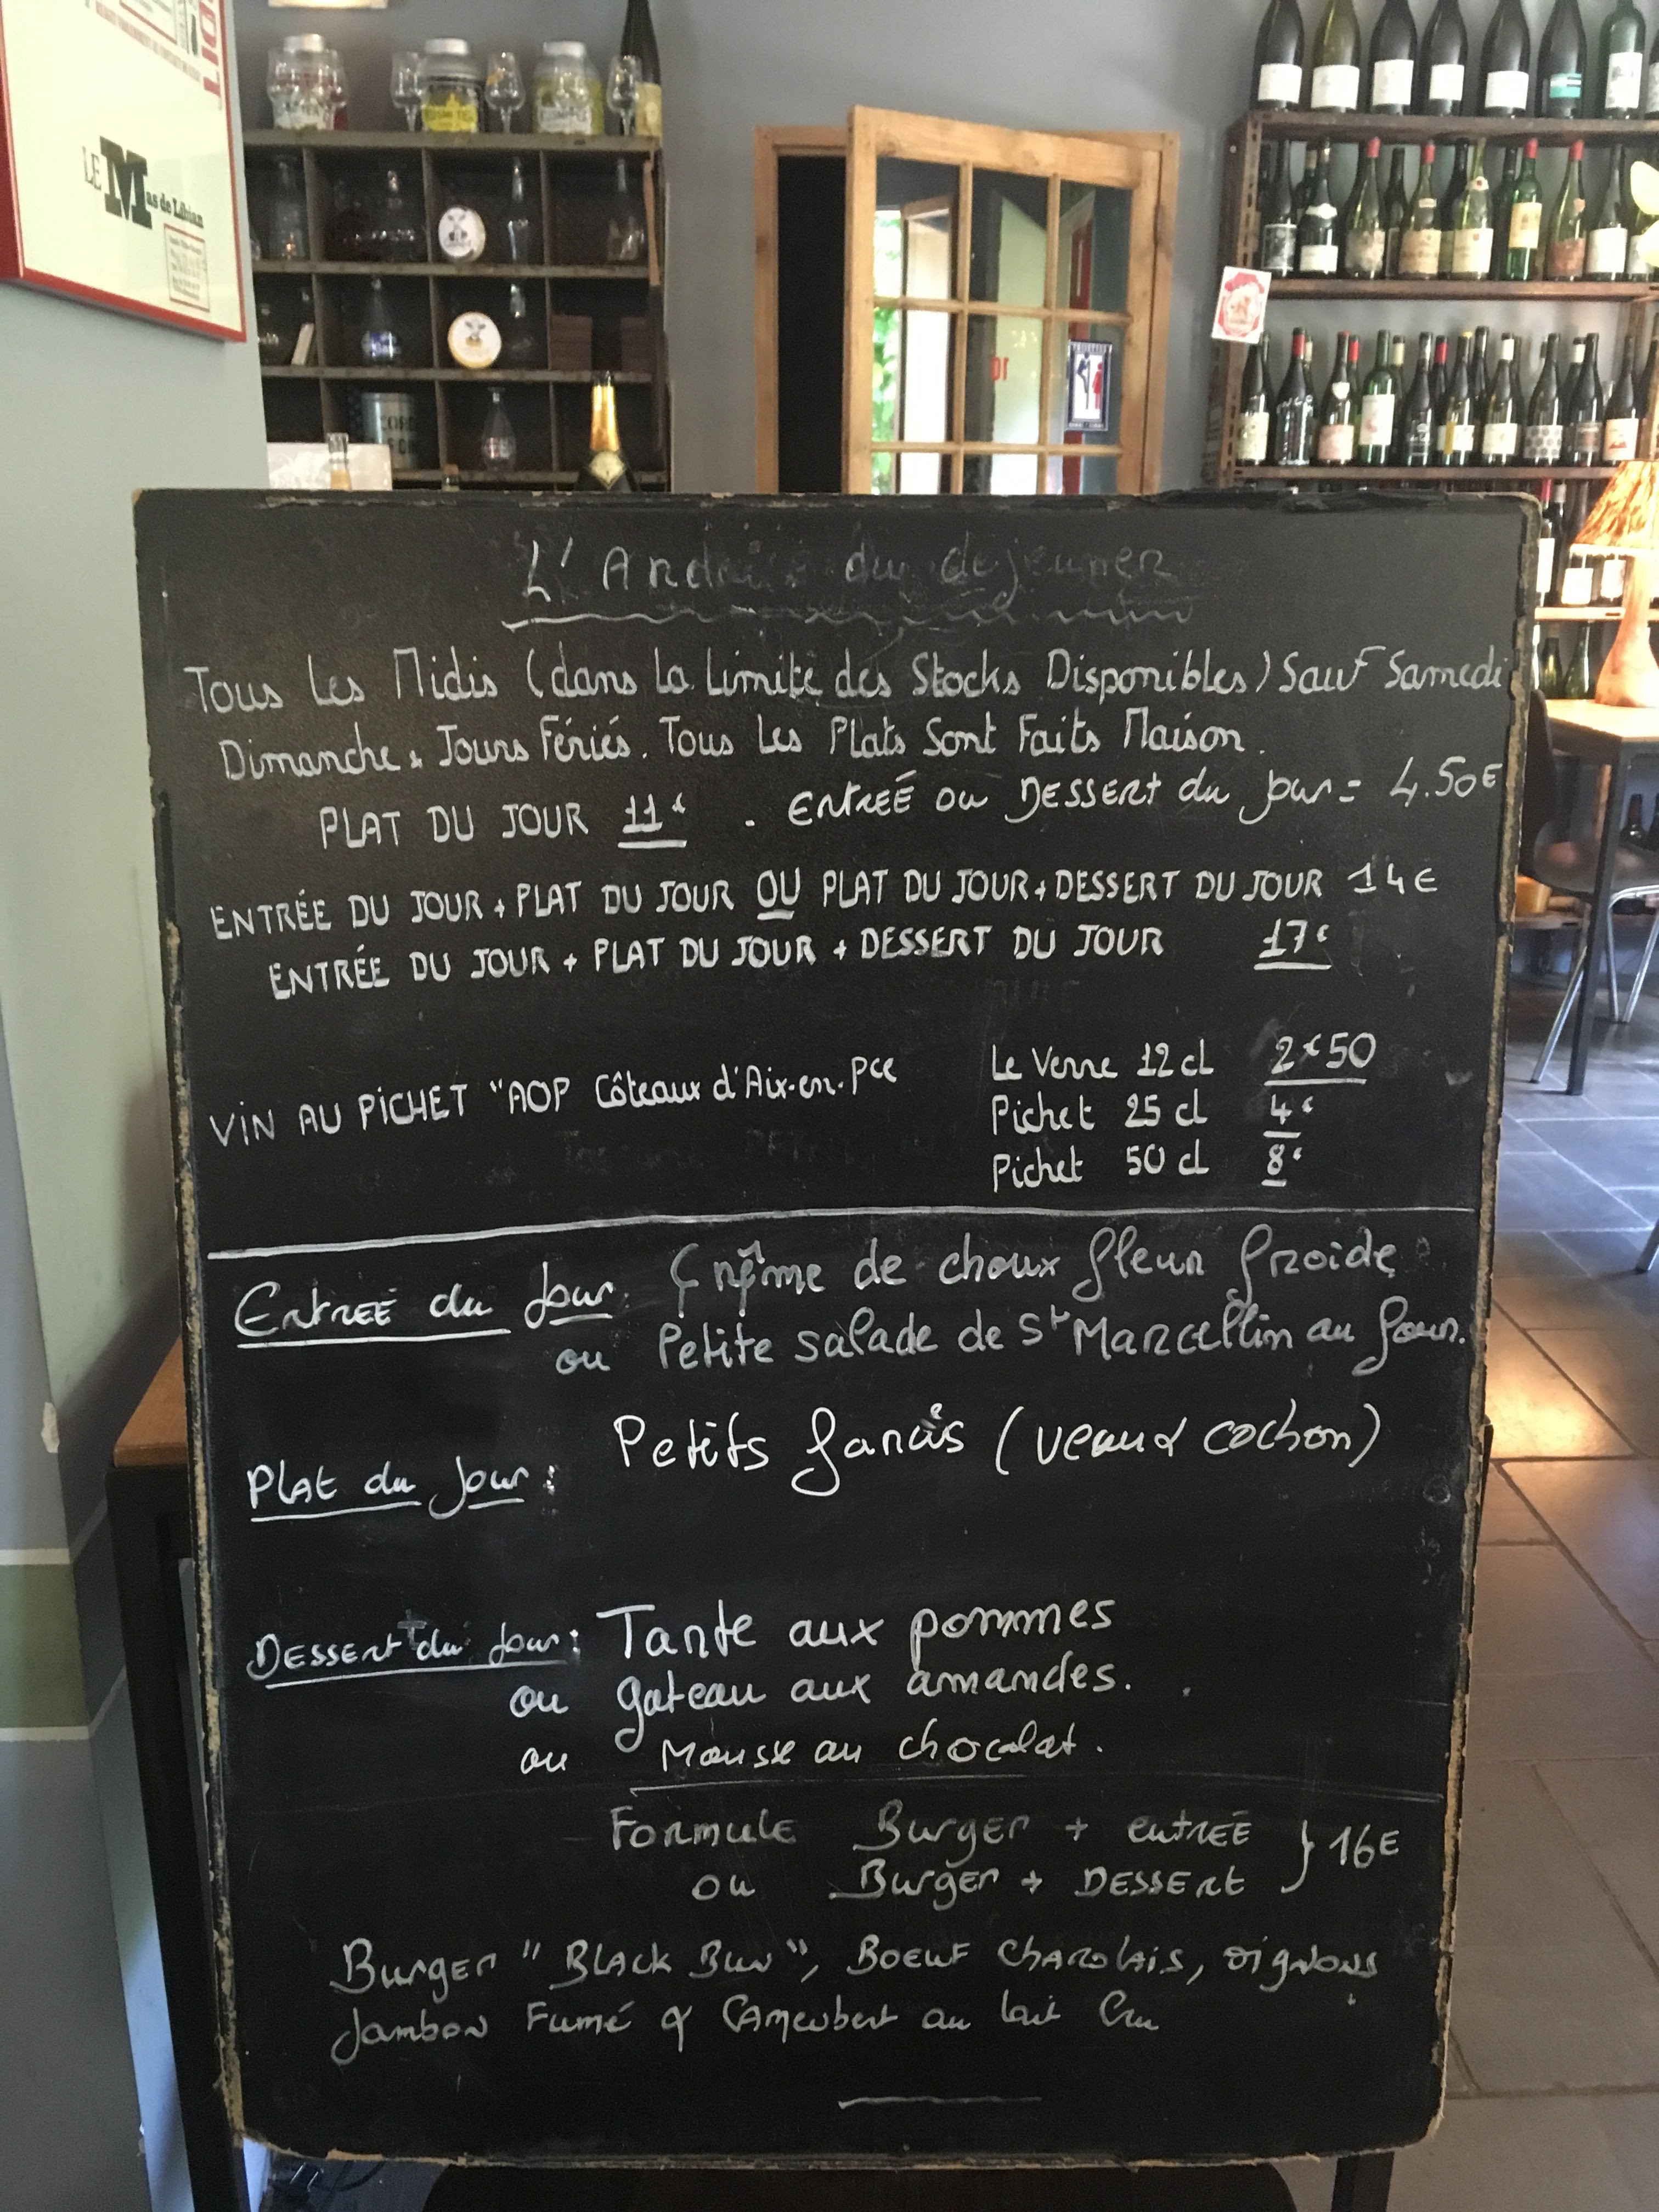 LE Mas de Libian
TOILETTES
L'Ardoise du dejeuner
Tous Les Midis (dans La Limite des Stocks Disponibles) Sauf Samedi
Dimanche & Jours Fériés. Tous Les Plats Sont Faits Maison.
PLAT DU JOUR 11€ . ENTREÉ OU DESSERT du jour = 4.50€
ENTRÉE DU JOUR + PLAT DU JOUR OU PLAT DU JOUR + DESSERT DU JOUR 14€
ENTRÉE DU JOUR + PLAT DU JOUR + DESSERT DU JOUR 17€
VIN AU PICHET "AOP Côteaux d'Aix-en-Pce
Le Verre 12 cl 2€50
Pichet 25 cl 4€
Pichet 50 cl 8€
Entreé du Jour: Crème de choux fleur froide
ou Petite salade de St Marcellin au four.
Plat du Jour: Petits farcis (veau & cochon)
Dessert du jour: Tarte aux pommes
ou gateau aux amandes.
ou Mousse au chocolat.
Formule Burger + entreé } 16€
ou Burger + Dessert
Burger "Black Bun", Boeuf Charolais, oignons
Jambon Fumé & Camembert au lait Cru